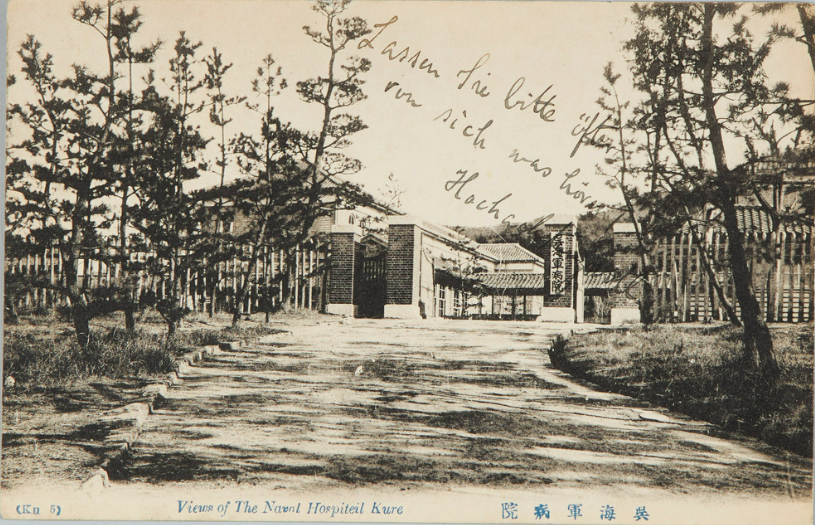 Lassen Sie bitte öfter
von sich was hören
Hacha
呉海軍病院
(Ku 5)
Views of The Naval Hospiteil Kure
院病軍海呉